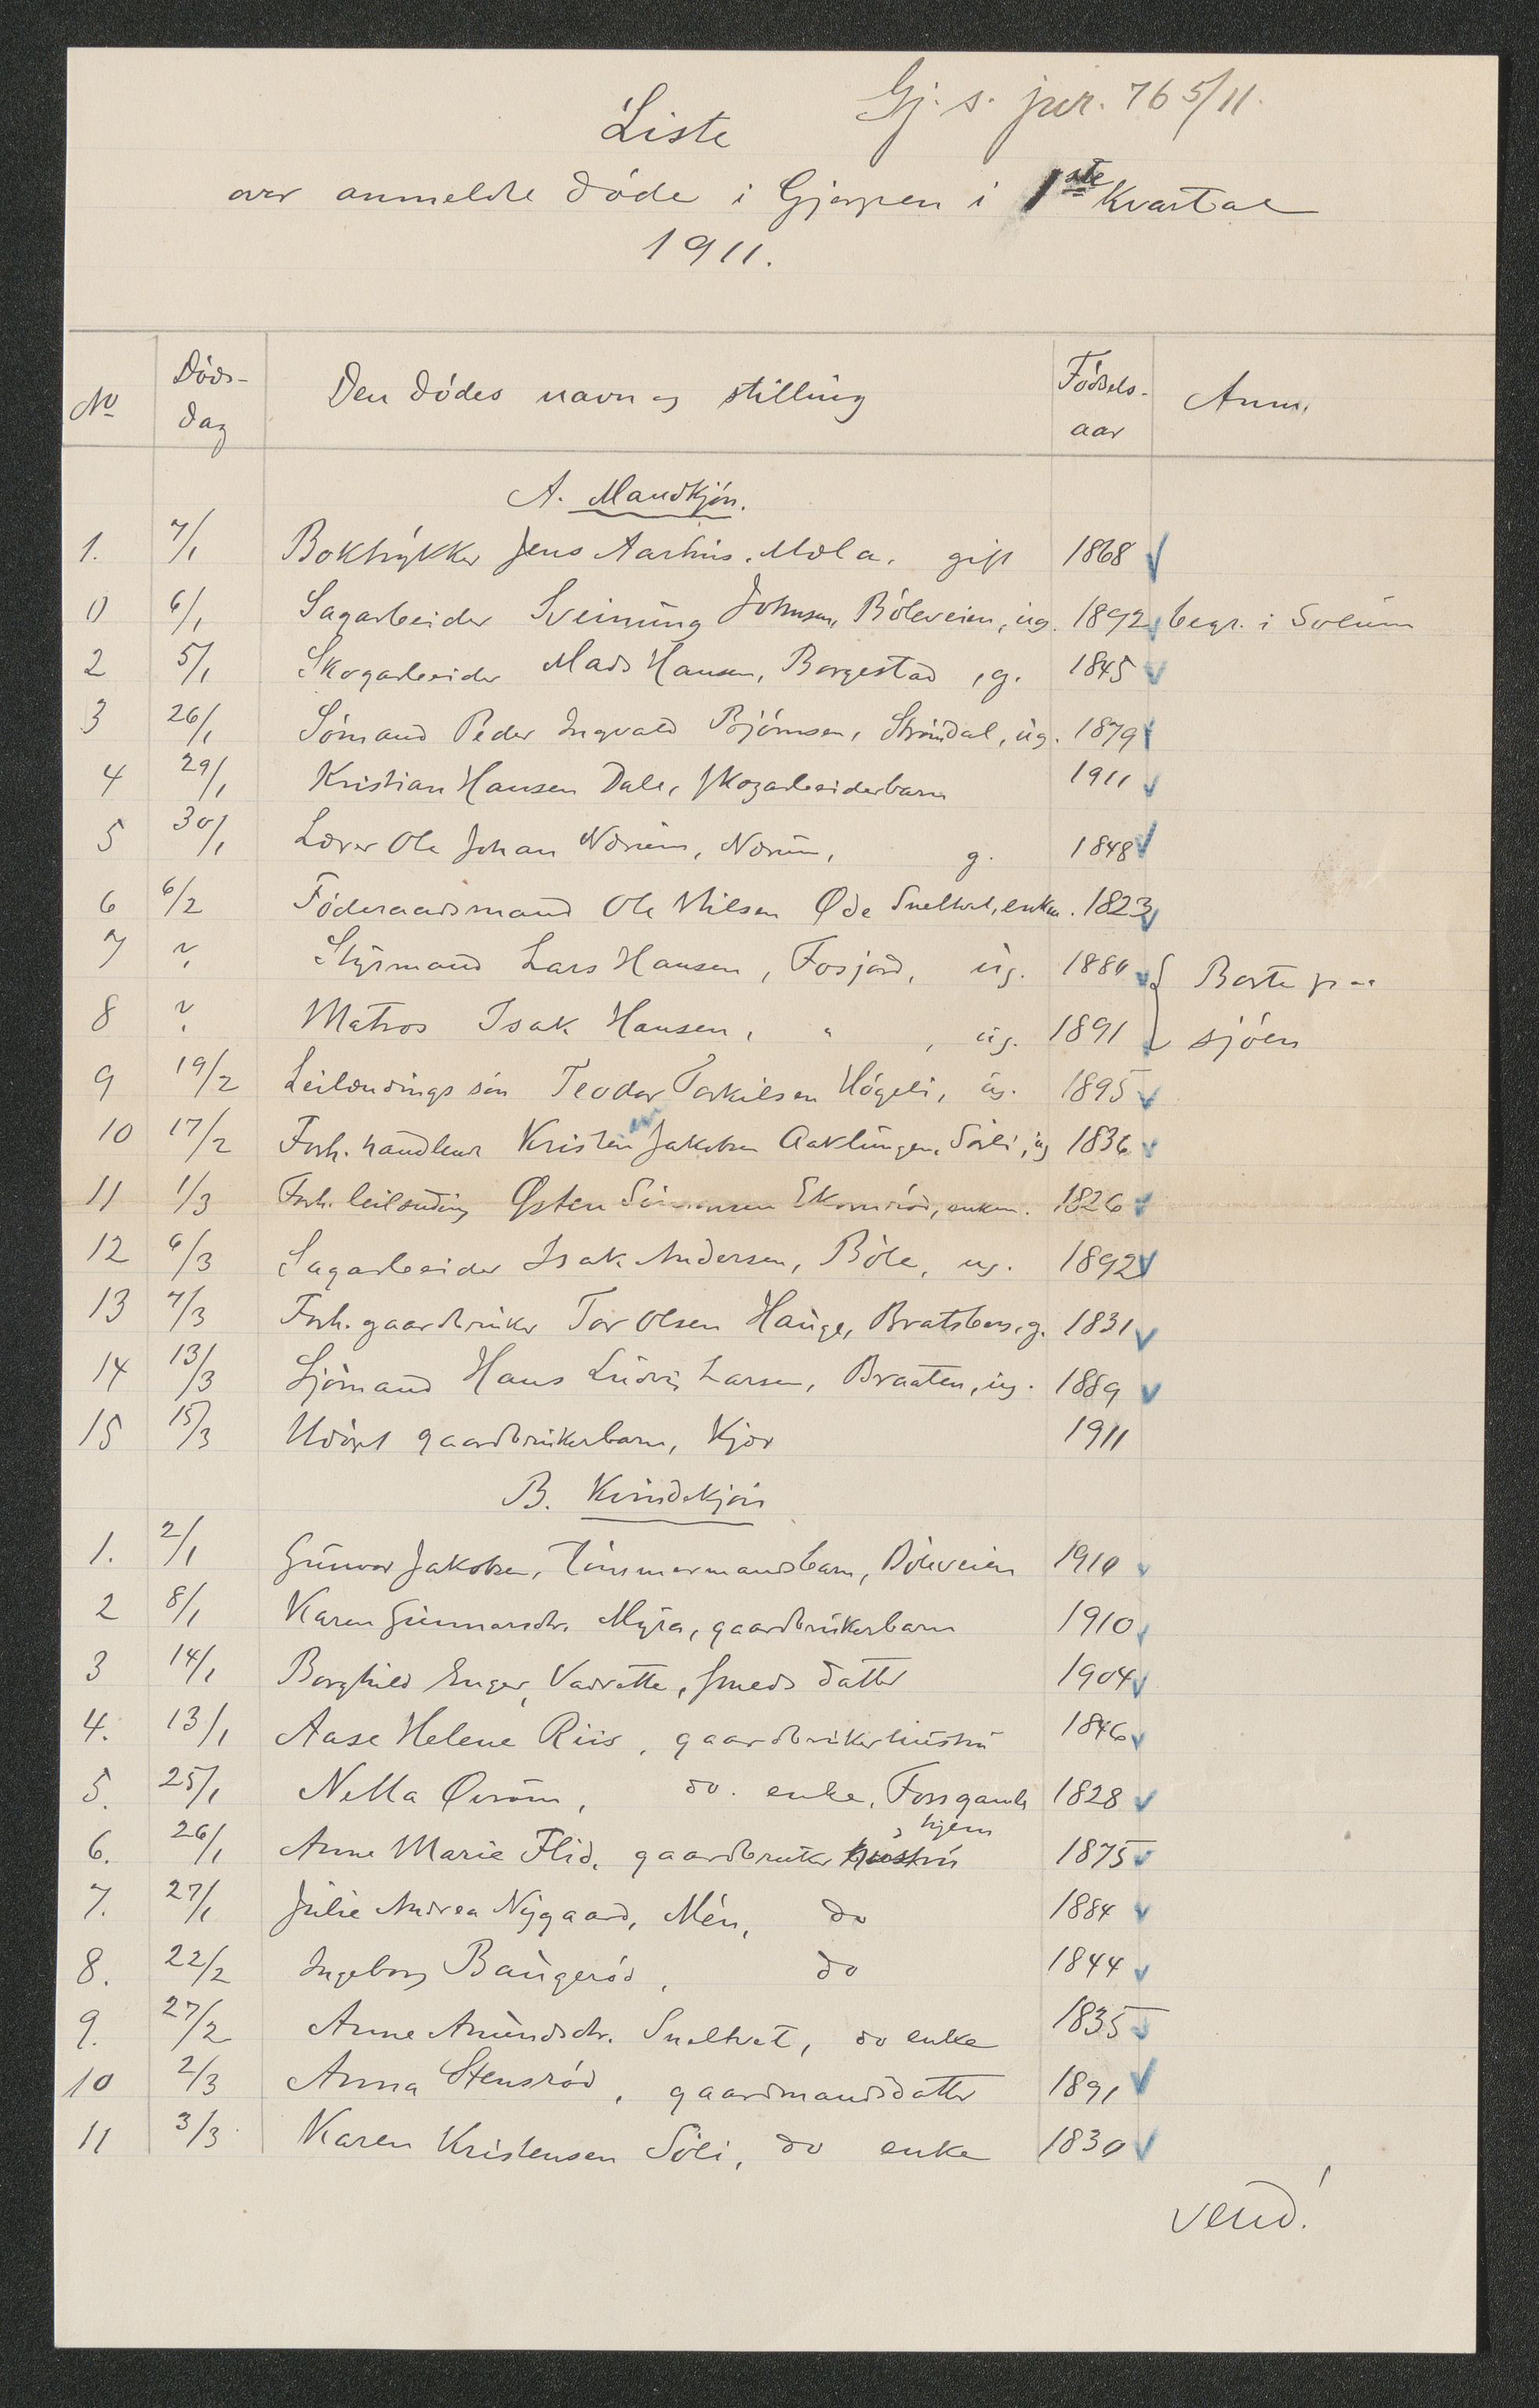 Gj. s. jnr. 765/11.
Liste
over anmeldte døde i Gjerpen i 1ste Kvartal
1911.
No Døds-dag Den dødes navn og stilling Fødsels-aar Anm.
A. Mandkjøn.
1. 7/1 Boktrykker Jens Aarhus. Mæla. gift 1868
0 6/1 Sagarbeider Sveinung Johnsen, Bøleveien, ug. 1892 begr. i Solum
2 5/1 Skogarbeider Mads Hansen, Borgestad, g. 1845
3 26/1 Sømand Peder Ingvald Bjørnsen, Strømdal, ug. 1879
4 29/1 Kristian Hansen Dale, skogarbeiderbarn 1911
5 30/1 Lærer Ole Johan Nærum, Nærum, g. 1848
6 6/2 Føderaadsmand Ole Nilsen Øde Sneltvet, enkem. 1823
7 ? Styrmand Lars Hansen, Fosjord, ug. 1880 Borte paa
8 ? Matros Isak Hansen, " , ug. 1891 sjøen
9 19/2 Leilændings søn Teodor Torkilsen Høgeli, ug. 1895
10 17/2 Forh. handlende Kristen Jakobsen Aaklungen, Søli, ug 1836
11 1/3 Forh. leilænding Østen Simonsen Ekornrød, enkem. 1826
12 6/3 Sagarbeider Isak Andersen, Bøle, ug. 1892
13 7/3 Forh. gaardbruker Tor Olsen Hauge, Bratsberg, g. 1831
14 13/3 Sjømand Hans Ludvig Larsen, Braaten, ug. 1889
15 15/3 Udøpt gaardbrukerbarn, Kjær 1911
B. Kvindekjøn
1. 2/1 Gunvor Jakobsen, Tømmermandsbarn, Bøleveien 1910
2 8/1 Karen Gunnarsdtr. Myra, gaardbrukerbarn 1910
3 14/1 Borghild Enger, Vadrette, smeds datter 1904
4. 13/1 Aase Helene Riis, gaardbrukerhustru 1846
5. 25/1 Nella Øverum, do. enke, Foss gamle 1828
hjem
6. 26/1 Anne Marie Flid, gaardbruker hustru 1875
7. 27/1 Julie Andrea Nygaard, Mén, do 1884
8. 22/2 Ingeborg Baugerød, do 1844
9. 27/2 Anne Amundsdtr. Sneltvet, do enke 1835
10 2/3 Anna Stensrød, gaardmandsdatter 1891
11 3/3 Karen Kristensen Søli, do enke 1830
vend!